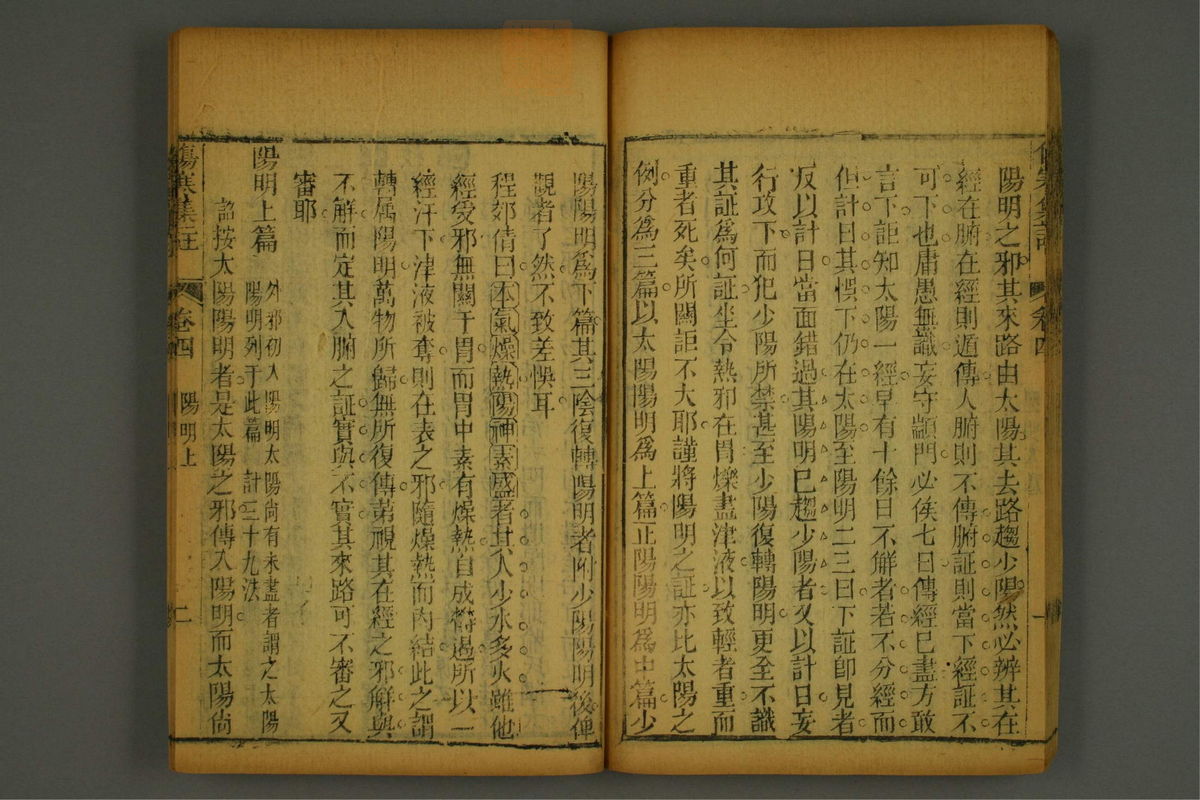 陽明之邪其來路由太陽其去路趨少陽然必辨其在
經在腑在經則遞傳人腑則不傳腑証則當下經証不
可下也庸愚無識妄守顓門必俟七日傳經已盡方敢
言下詎知太陽一經早有十餘日不解者若不分經而
但計日其悞下仍在太陽至陽明二三日下証卽見者
反以計日當面錯過其陽明已趨少陽者又以計日妄
行攻下而犯少陽所禁甚至少陽復轉陽明更至不識
其証爲何証坐令熱邪在胃爍盡津液以致輕者重而
重者死矣所關詎不大耶謹將陽明之証亦比太陽之
例分爲三篇以太陽陽明爲上篇正陽陽明爲中篇少
傷寒集註 卷四 一
陽陽明爲下篇其三陰復轉陽明者附少陽陽明後俾
觀者了然不致差悞耳
程郊倩曰本氣燥熱陽神素盛者其人少水多火雖他
經受邪無關于胃而胃中素有燥熱自成符過所以一
經汗下津液被奪則在表之邪隨燥熱而內結此之謂
轉属陽明萬物所歸無所復傳苐覗其在經之邪解與
不解而定其入腑之証實與不實其來路可不審之又
審耶
陽明上篇 外邪初入陽明太陽尚有未盡者謂之太陽
陽明列于此篇 計三十九法
詔按太陽陽明者是太陽之邪傳入陽明而太陽尚
傷寒集註 卷四 陽明上 二